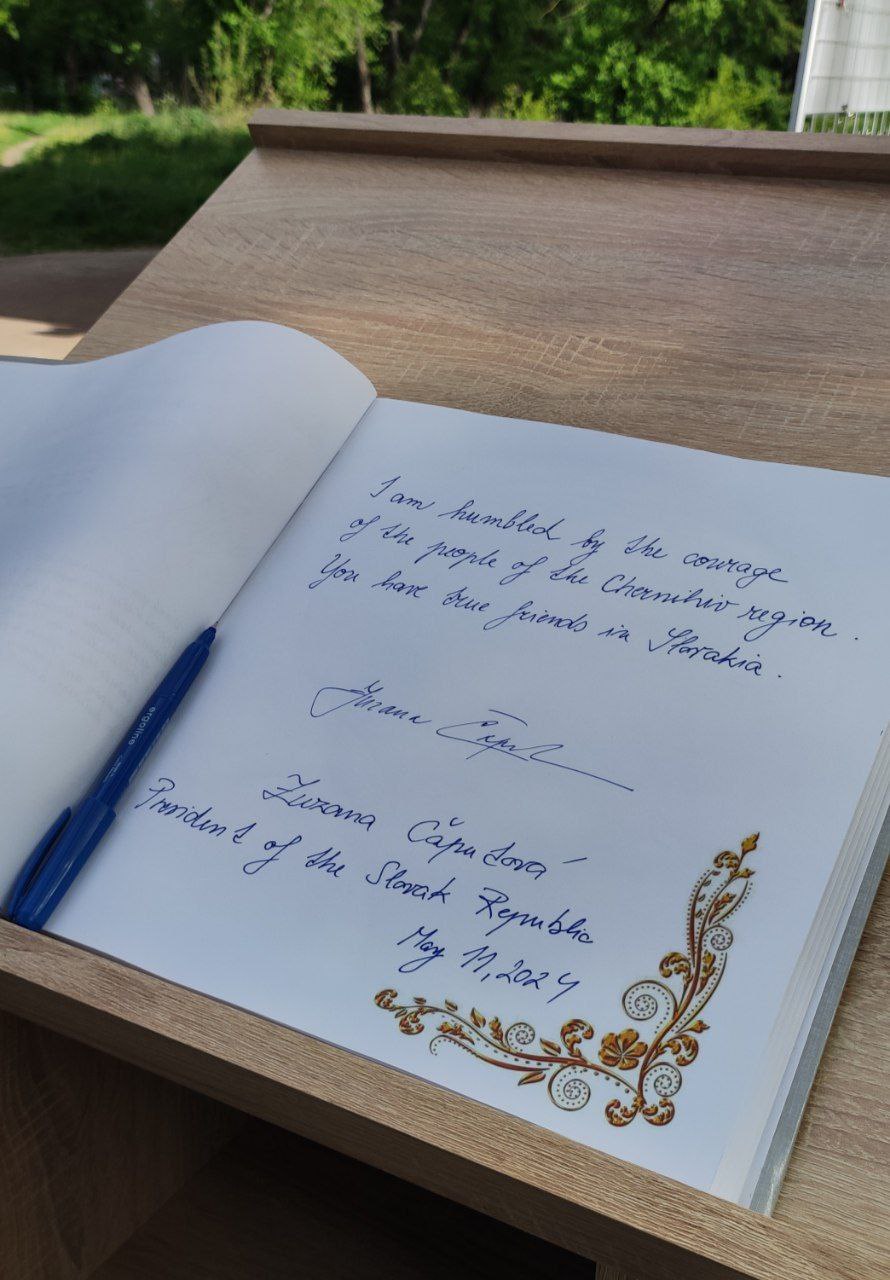 I am humbled by the courage
of the people of the Chernihiv region.
You have true friends in Slovakia.
Zuzana Čaputová
President of the Slovak Republic
May 11, 2024
ergoline